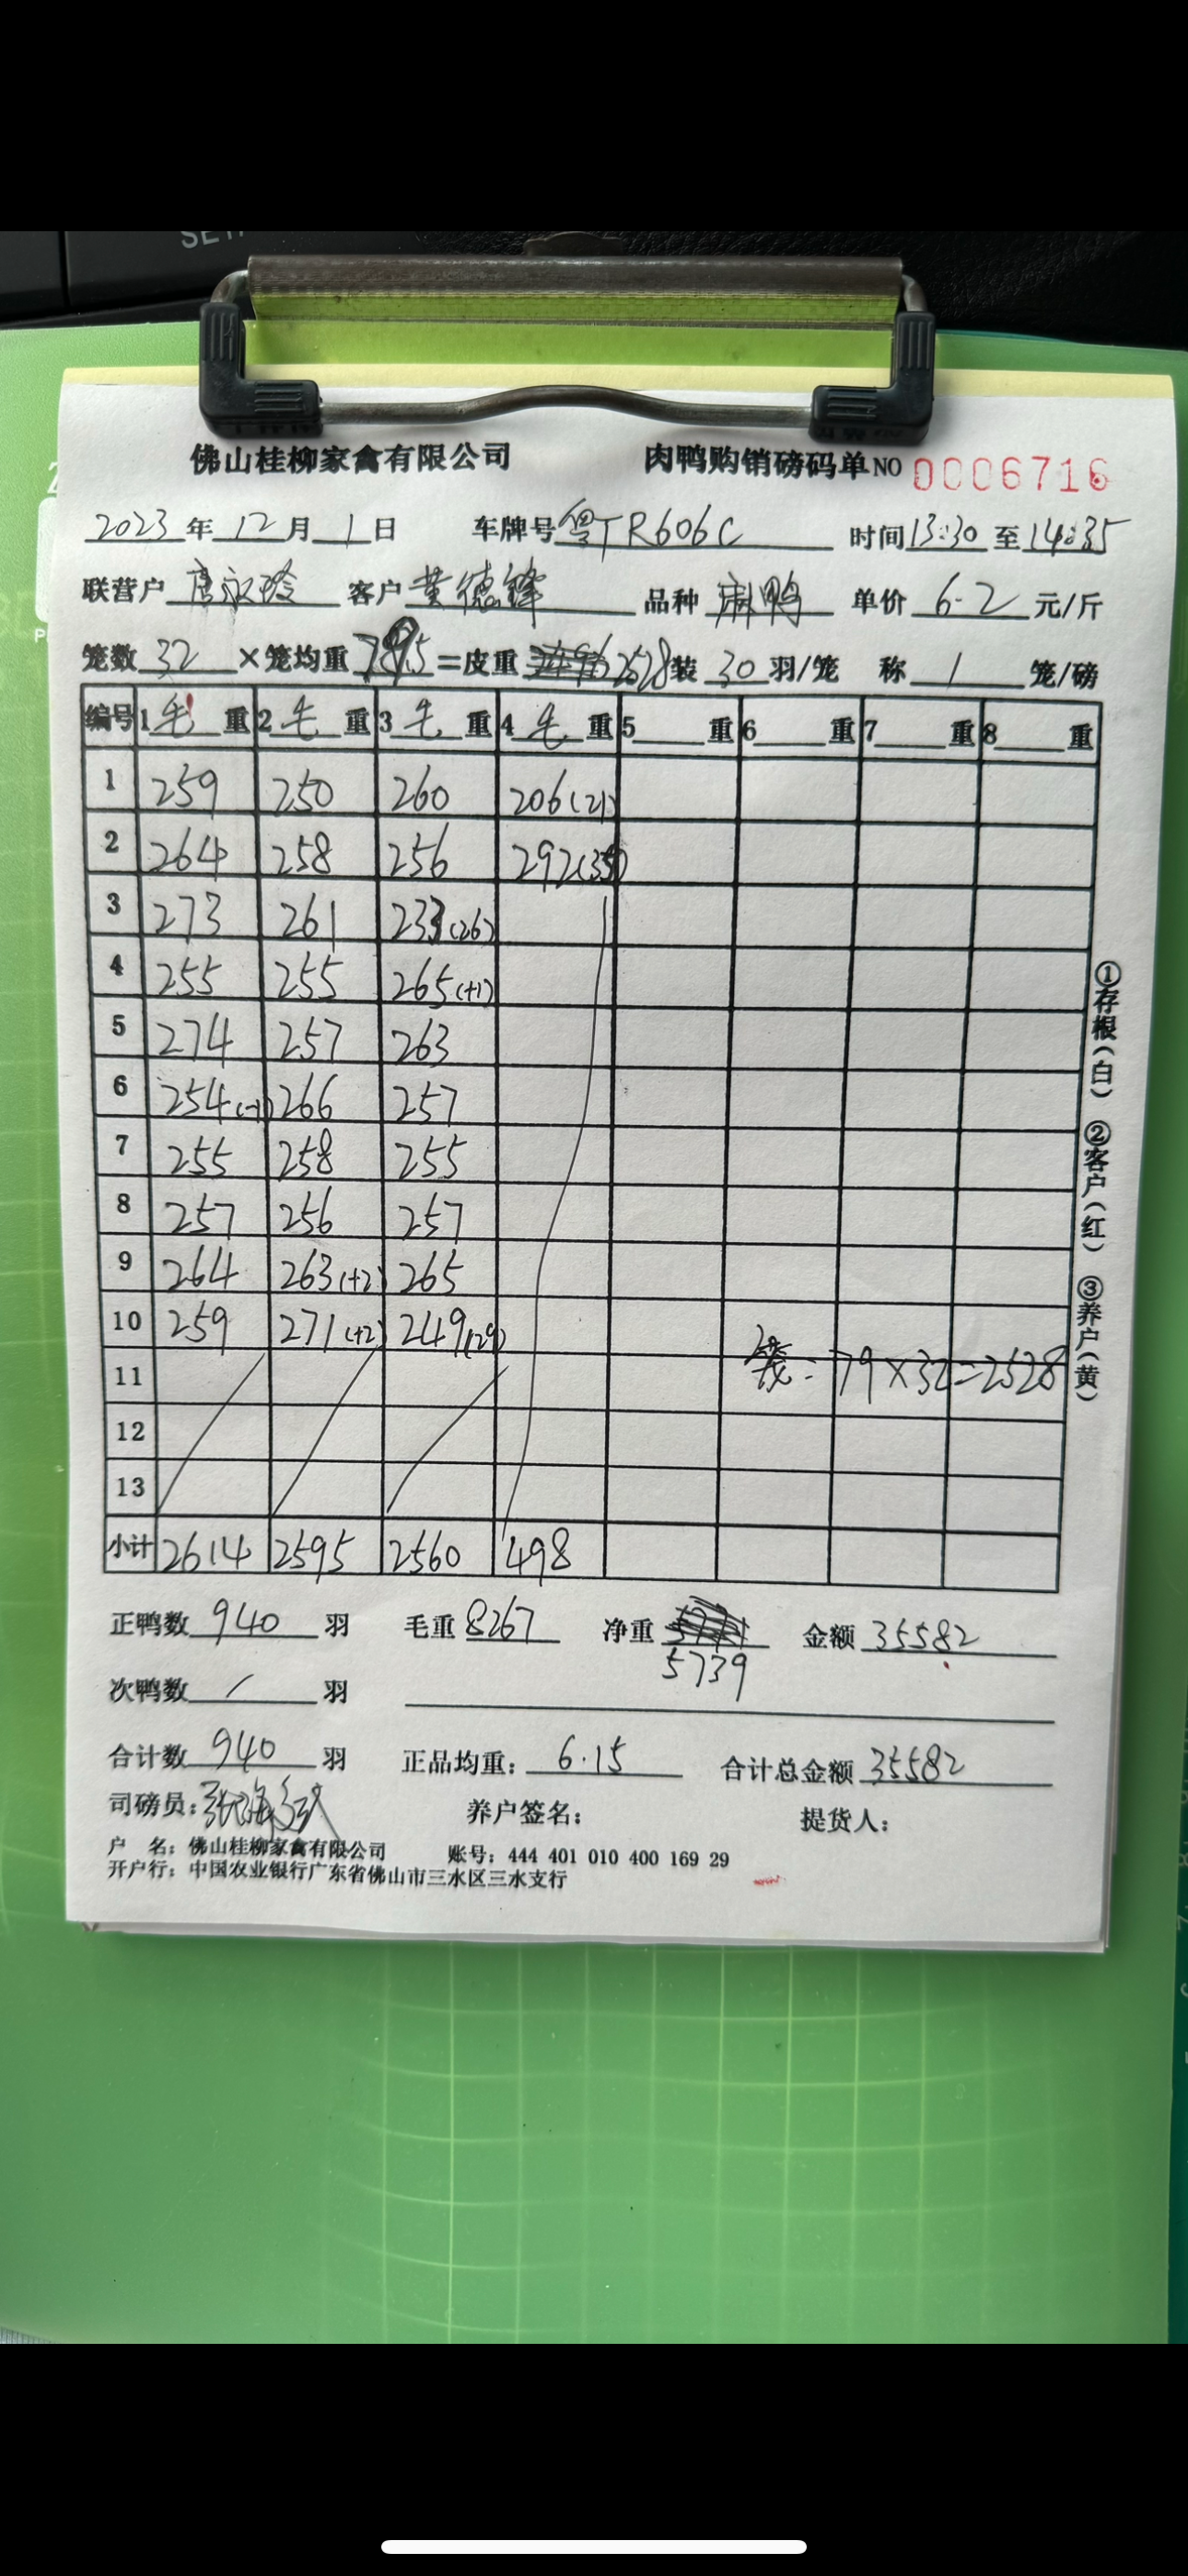 佛山桂柳家禽有限公司 肉鸭购销磅码单 NO 0006716
2023年12月1日 车牌号 粤TR606C 时间 13:30 至 14:35
联营户 唐永玲 客户 黄德锋 品种 麻鸭 单价 6.2 元/斤
笼数 32 ×笼均重 79 =皮重 2528 装 30 羽/笼 称 1 笼/磅
编号 1 毛 重 2 毛 重 3 毛 重 4 毛 重 5 重 6 重 7 重 8 重
1 259 250 260 206(21)
2 264 258 256 292(35)
3 273 261 233(26)
4 255 255 265(+1)
5 274 257 263
6 254(-1) 266 257
7 255 258 255
8 257 256 257
9 264 263(+2) 265
10 259 271(+2) 249(29)
11 笼: 79×32=2528
12
13
小计 2614 2595 2560 498
正鸭数 940 羽 毛重 8267 净重 5739 金额 35582
次鸭数 / 羽
合计数 940 羽 正品均重: 6.15 合计总金额 35582
司磅员: 养户签名: 提货人:
户 名: 佛山桂柳家禽有限公司 账号: 444 401 010 400 169 29
开户行: 中国农业银行广东省佛山市三水区三水支行
①存根(白) ②客户(红) ③养户(黄)